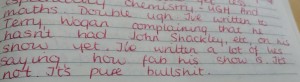 especially Chemistry - light and
maths. Double ugh. I've written to
Terry Wogan complaining that he
hasn't had John Shockley, etc, on his
show yet. I've written a lot of lies
saying how fab his show is. It's
not. It's pure bullshit.